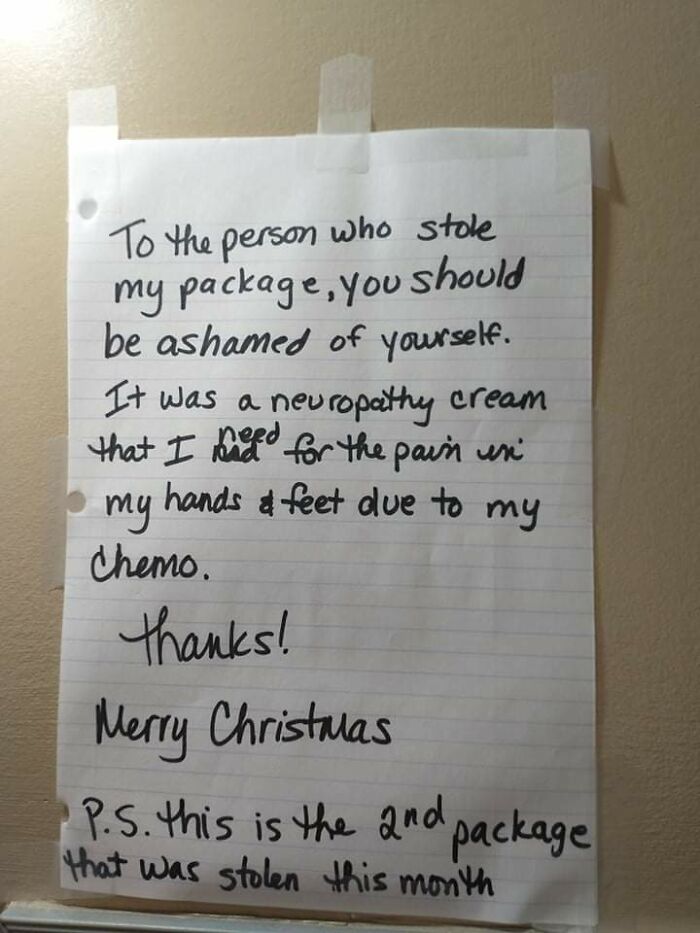 To the person who stole
my package, you should
be ashamed of yourself.
It was a neuropathy cream
that I need for the pain in
my hands & feet due to my
Chemo.
Thanks!
Merry Christmas
P.S. this is the 2nd package
that was stolen this month